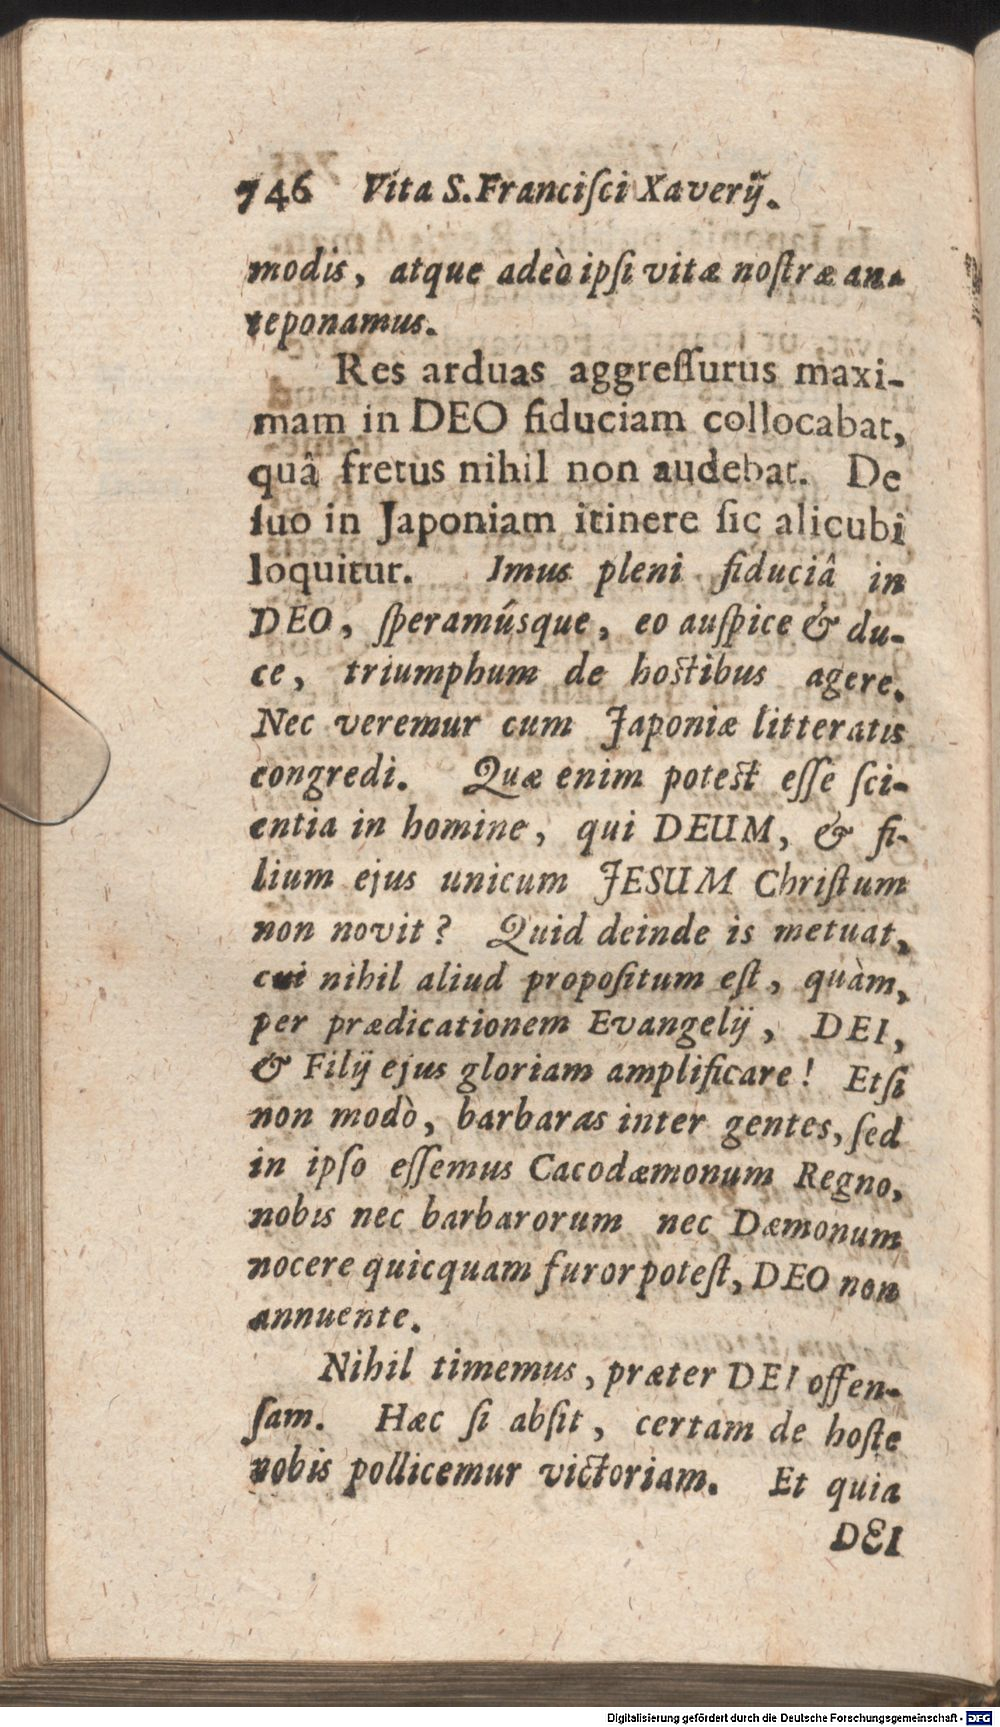 746 Vita S. Franciſci Xaverij.
modis, atque adeò ipſi vitæ noſtræ an-
teponamus.
Res arduas aggreſſurus maxi-
mam in DEO fiduciam collocabat,
quâ fretus nihil non audebat. De
ſuo in Japoniam itinere ſic alicubi
loquitur. Imus pleni fiduciâ in
DEO, ſperamúsque, eo auſpice & du-
ce, triumphum de hostibus agere.
Nec veremur cum Japoniæ litteratis
congredi. Quæ enim potest eſſe ſci-
entia in homine, qui DEUM, & fi-
lium ejus unicum JESUM Chriſtum
non novit? Quid deinde is metuat,
cui nihil aliud propoſitum eſt, quàm,
per prædicationem Evangelij, DEI,
& Filij ejus gloriam amplificare! Etſi
non modò, barbaras inter gentes, ſed
in ipſo eſſemus Cacodæmonum Regno,
nobis nec barbarorum nec Dæmonum
nocere quicquam furor poteſt, DEO non
annuente.
Nihil timemus, præter DEI offen-
ſam. Hæc ſi abſit, certam de hoſte
nobis pollicemur victoriam. Et quia
DEI
Digitalisierung gefördert durch die Deutsche Forschungsgemeinschaft - DFG